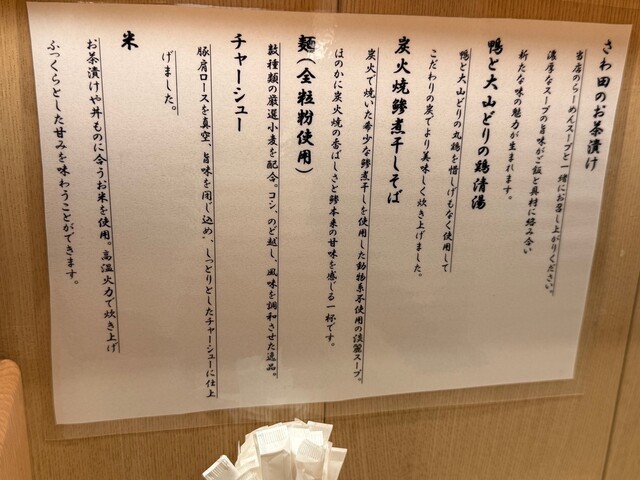 さわ田のお茶漬け
当店のらーめんスープと一緒にお召し上がりください。
濃厚なスープの旨味がご飯と具材に絡み合い
新たな味の魅力が生まれます。
鴨と大山どりの鶏清湯
鴨と大山どりの丸鶏を惜しげもなく使用して
こだわりの炭でより美味しく炊き上げました。
炭火焼鯵煮干しそば
炭火で焼いた希少な鯵煮干しを使用した動物系不使用の淡麗スープ。
ほのかに炭火焼の香ばしさと鯵本来の甘味を感じる一杯です。
麺(全粒粉使用)
数種類の厳選小麦を配合。コシ、のど越し、風味を調和させた逸品。
チャーシュー
豚肩ロースを真空、旨味を閉じ込め、しっとりとしたチャーシューに仕上
げました。
米
お茶漬けや丼ものに合うお米を使用。高温火力で炊き上げ
ふっくらとした甘みを味わうことができます。